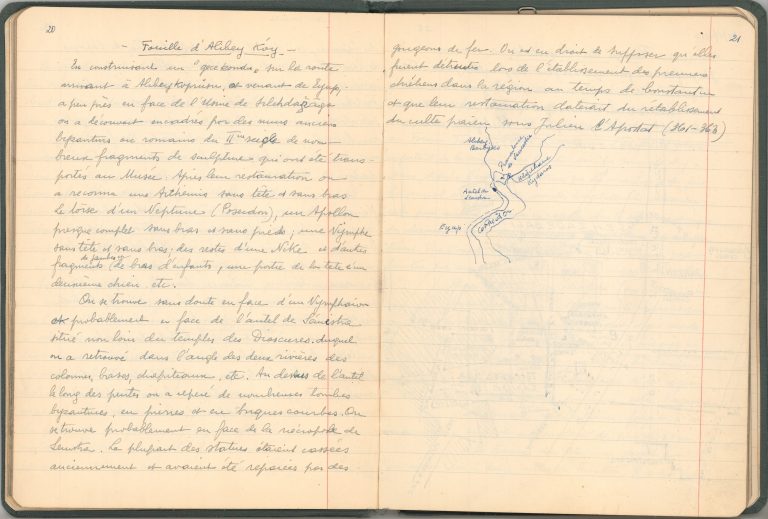 20
- Fouille d'Alibey Köy -
En construisant un "gecekondu" sur la route
menant à Alibeyköyünün, et venant de Eyup,
a peu près en face de l'Usine de Silahdarağa
on a découvert encadrés par des murs anciens
byzantins ou romains du IIme siècle de nom-
breux fragments de sculpture qui ont été trans-
portés au Musée. Après leur restauration on
a reconnu une Arthémis sans tête et sans bras
Le torse d'un Neptune (Poseidon), un Apollon
presque complet sans bras et sans pieds, une Nymphe
sans tête et sans bras, des restes d'une Nike et d'autres
fragments (de jambes et de bras d'enfants, une partie de la tête d'un
deuxième chien etc.
On se trouve sans doute en face d'un Nymphaion
et probablement en face de l'autel de Sémistra
situé non loin du temple des Dioscures duquel
on a retrouvé dans l'angle des deux rivières des
colonnes, bases, chapiteaux, etc. Au dessus de l'autel
le long des pentes on a repéré de nombreuses tombes
byzantines, en pierres et en briques courbes. On
se trouve probablement en face de la nécropole de
Semistra. La plupart des statues étaient cassées
anciennement et avaient été réparées par des
21
gougeons de fer. On est en droit de supposer qu'elles
furent détruites lors de l'établissement des premiers
chrétiens dans la région au temps de Constantin
et que leur restauration daterait du rétablissement
du culte païen sous Julien l'Apostat (361-363)
Alibey
Barbyzes
Semistra
Kydaros
Autel de
Semistra
Eyup